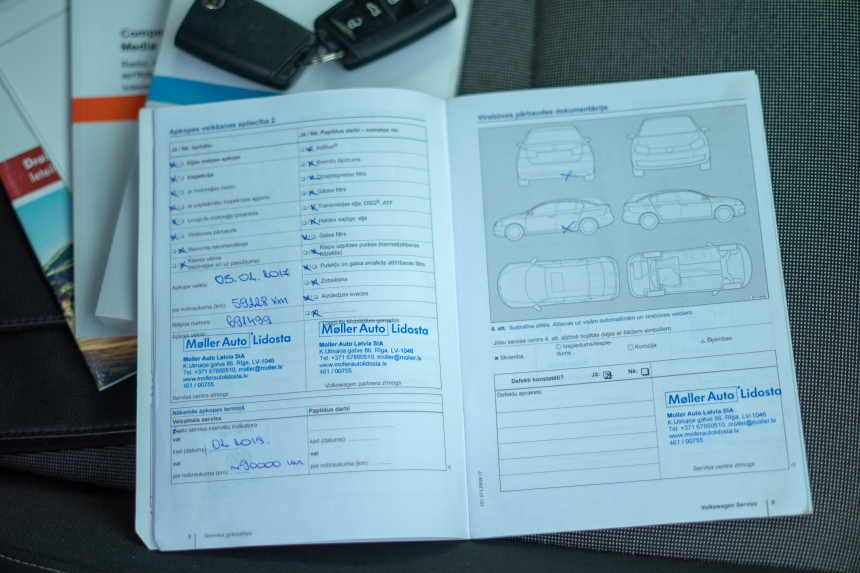 Compo
Media
Radio,
Apkopes veikšanas apliecība 2
Jā / Nē Izpildīts
Jā / Nē. Papildus darbi – nomaiņa no:
Eļļas maiņas apkope
AdBlue®
Inspekcija
Bremžu šķidrums
ar motoreļļas maiņu
Dīzeļdegvielas filtrs
ar paplašinātu inspekcijas apjomu
Gāzes filtrs
LongLife motoreļļa izmantota
Transmisijas eļļa: DSG®, ATF
Virsbūves pārbaude
Haldex sajūgs: eļļa
Remonta rekomendācija
Gaisa filtrs
Klients vēlme
(atzīmējiet arī uz pasūtījuma)
Riepu uzpildes pudele (hermetizēšanas
līdzeklis)
Putekļu un gaisa smalkās attīrīšanas filtrs
Zobsiksna
Aizdedzes sveces
Apkope veikta: 05.02.2017
pie nobraukuma (km): 59228 KM
Rēķina numurs: 691499
Møller Auto Lidosta
Møller Auto Latvia SIA
K.Ulmaņa gatve 86, Rīga, LV-1046
Tel. +371 67860510, moller@moller.lv
www.mollerautolidosta.lv
461 / 00755
Servisa centra zīmogs
Møller Auto Lidosta
Møller Auto Latvia SIA
K.Ulmaņa gatve 86, Rīga, LV-1046
Tel. +371 67860510, moller@moller.lv
www.mollerautolidosta.lv
461 / 00755
Volkswagen partnera zīmogs
Nākamās apkopes termiņš
Veicamais serviss
Papildus darbi
pēc servisa intervālu indikatora
vai
kad (datums): 02.2019.
kad (datums):
vai
vai
pie nobraukuma (km): ~90000 км
pie nobraukuma (km):
8 Servisa grāmatiņa
Virsbūves pārbaudes dokumentācija
4. att. Ilustratīvs attēls. Attiecas uz visām automašīnām un virsbūves veidiem.
Jūsu servisa centrs 4. att. atzīmē bojātās daļas ar šādiem simboliem:
Skramba
Izspiedums/iespie-
dums
Korozija
Šķembas
Defekti konstatēti?
Jā:
Nē:
Defektu apraksts:
Møller Auto Lidosta
Møller Auto Latvia SIA
K.Ulmaņa gatve 86, Rīga, LV-1046
Tel. +371 67860510, moller@moller.lv
www.mollerautolidosta.lv
461 / 00755
Servisa centra zīmogs
Volkswagen Serviss 9